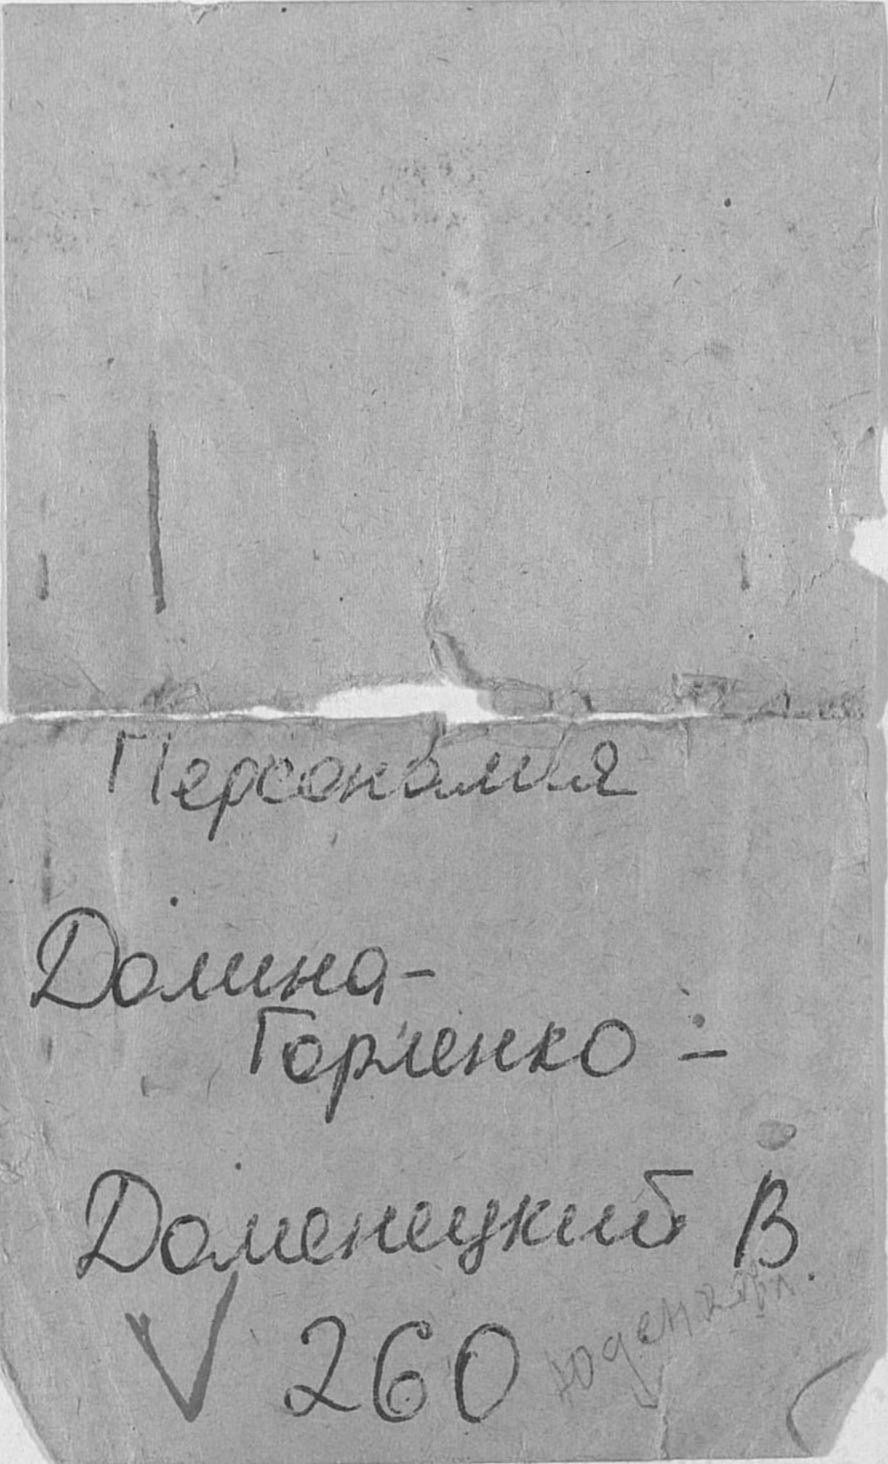 Персоналия
Долина-
Горленко -
Доменецкий В.
V 260